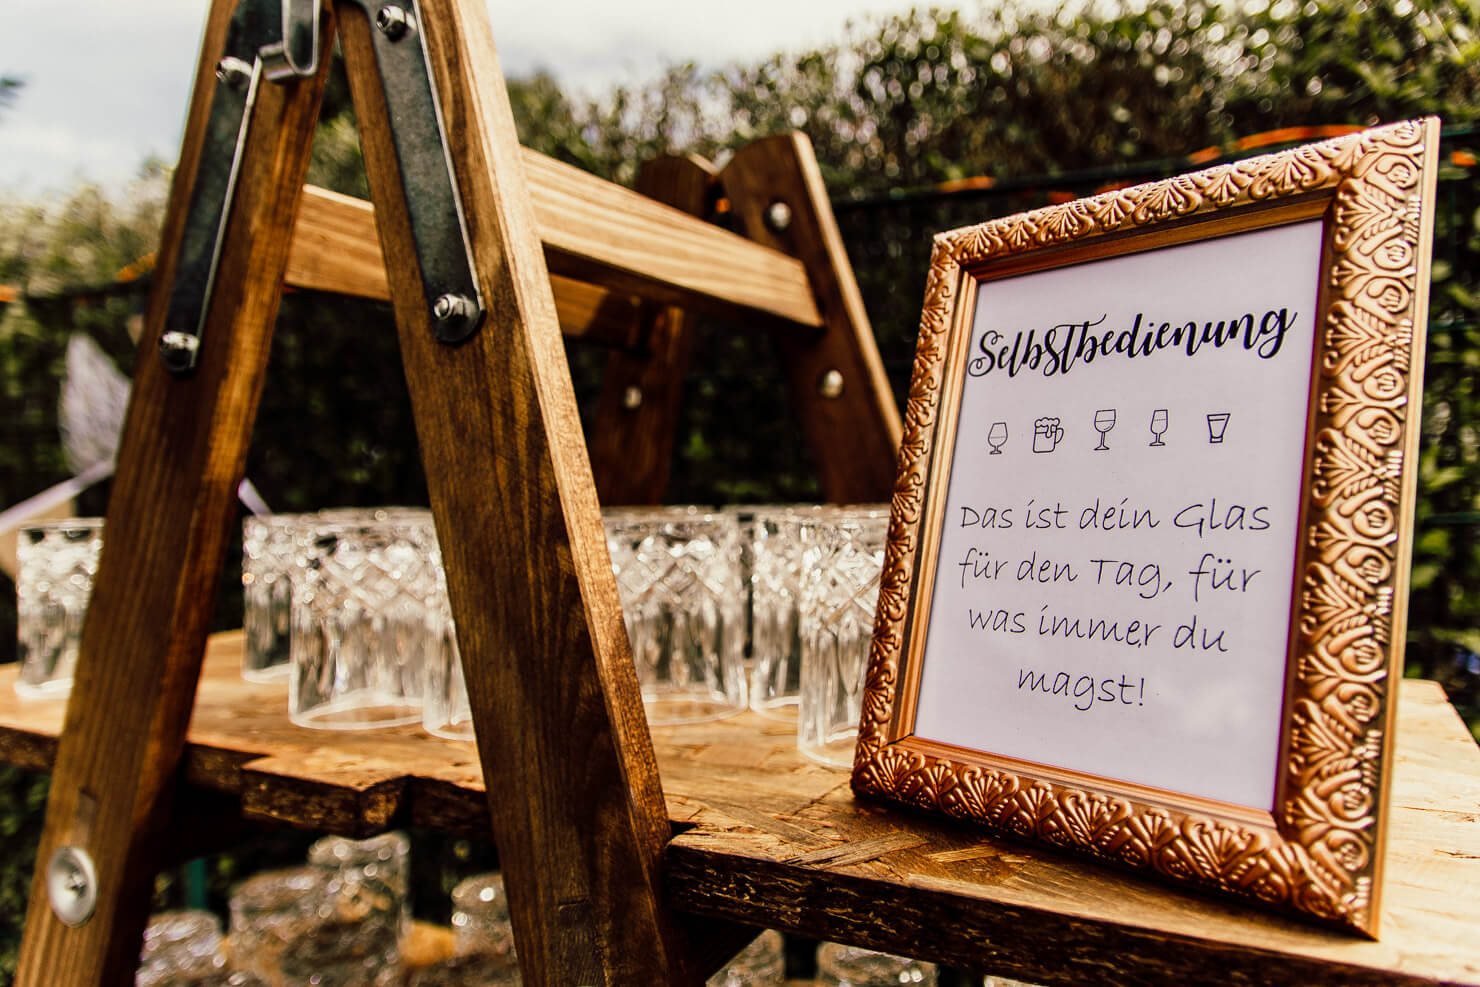 Selbstbedienung
Das ist dein Glas
für den Tag, für
was immer du
magst!